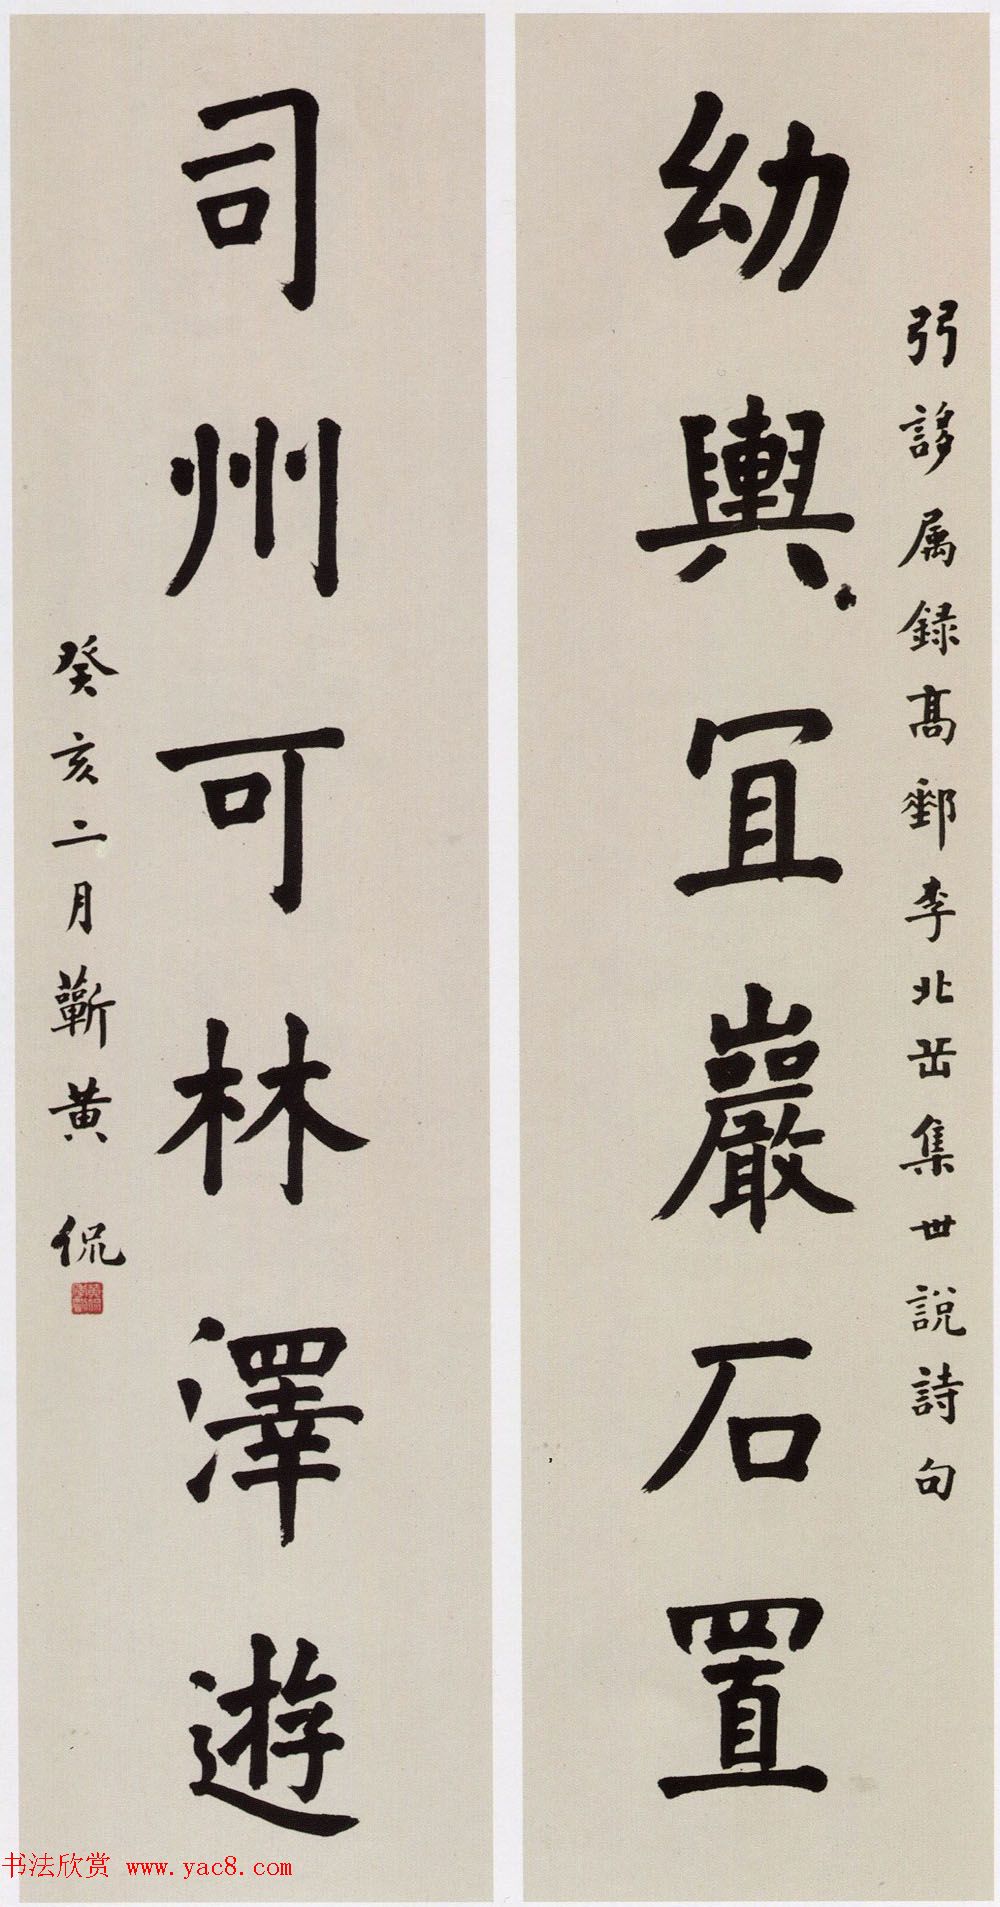 弜誃属録高郵李北岳集世說詩句
幼輿冝巖石置
司州可林澤遊
癸亥二月蘄黄侃
书法欣赏 www.yac8.com